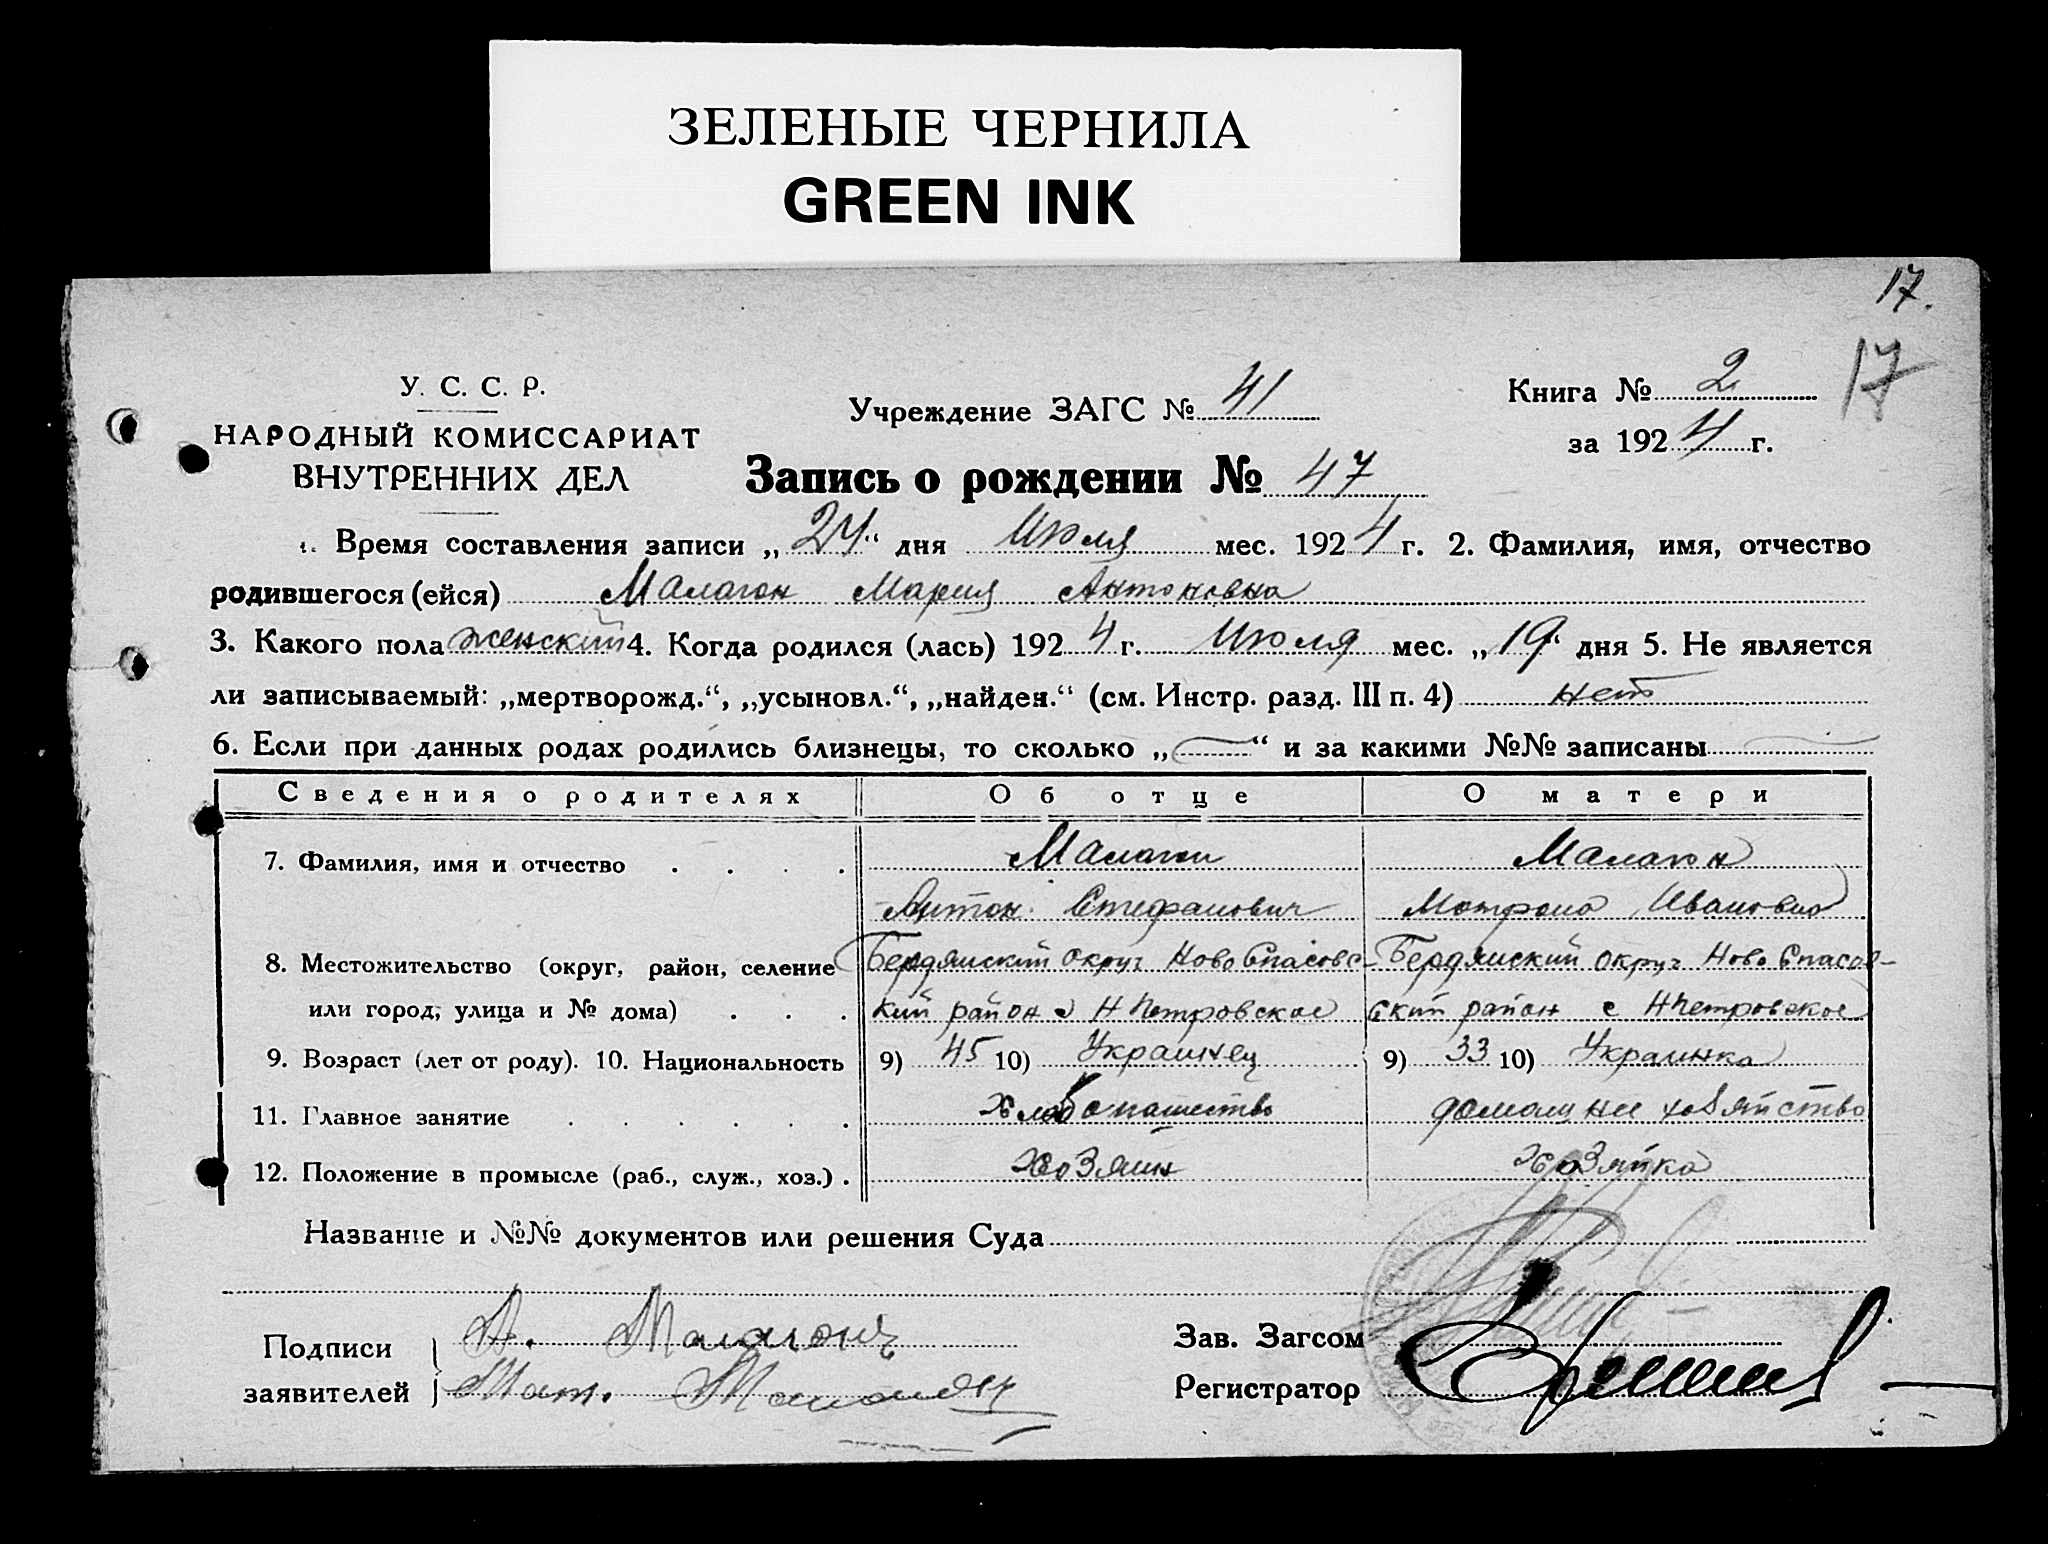 ЗЕЛЕНЫЕ ЧЕРНИЛА
GREEN INK
17.
17
У. С. С. Р.
НАРОДНЫЙ КОМИССАРИАТ
ВНУТРЕННИХ ДЕЛ
Учреждение ЗАГС № 41
Книга № 2
за 1924 г.
Запись о рождении № 47
1. Время составления записи „24“ дня Июля мес. 1924 г. 2. Фамилия, имя, отчество
родившегося (ейся) Малагон Мария Антоновна
3. Какого пола женский 4. Когда родился (лась) 1924 г. Июля мес. „19“ дня 5. Не является
ли записываемый: „мертворожд.“, „усыновл.“, „найден.“ (см. Инстр. разд. III п. 4) нет
6. Если при данных родах родились близнецы, то сколько „—“ и за какими №№ записаны —
Сведения о родителях Об отце О матери
7. Фамилия, имя и отчество . . . . Малагон Малагон
Антон Стефанович Мотрона Ивановна
8. Местожительство (округ, район, селение Бердянский округ Ново Спасовс- Бердянский округ Ново Спасов-
или город, улица и № дома) . . . кий район с Н Петровское ский район с Н Петровское
9. Возраст (лет от роду). 10. Национальность 9) 45 10) Украинец 9) 33 10) Украинка
11. Главное занятие . . . . . . Хлебопашество домашнее хозяйство
12. Положение в промысле (раб., служ., хоз.) . Хозяин Хозяйка
Название и №№ документов или решения Суда
Подписи А. Малагонъ
заявителей Мат.
Зав. Загсом
Регистратор